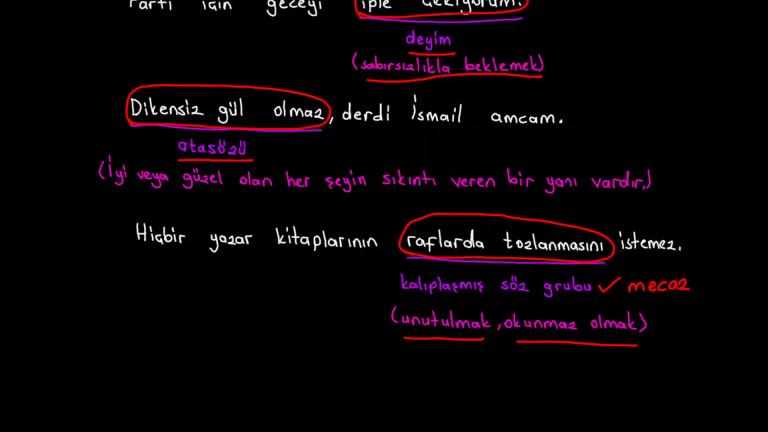 Parti için geceyi iple çekiyorum.
deyim
(sabırsızlıkla beklemek)
Dikensiz gül olmaz, derdi İsmail amcam.
atasözü
(İyi veya güzel olan her şeyin sıkıntı veren bir yanı vardır.)
Hiçbir yazar kitaplarının raflarda tozlanmasını istemez.
kalıplaşmış söz grubu ✓ mecaz
(unutulmak, okunmaz olmak)